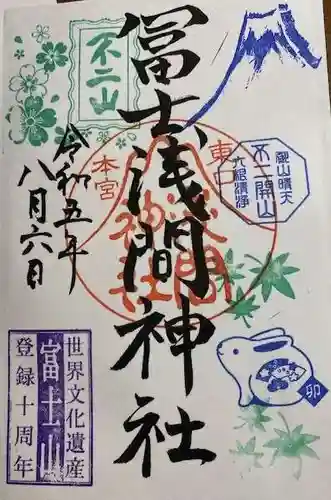 冨士浅間神社
令和五年
八月六日
不二山
東口
本宮
浅間
神社
不二開山
六根清浄
御山晴天
卯
世界文化遺産
富士山
登録十周年